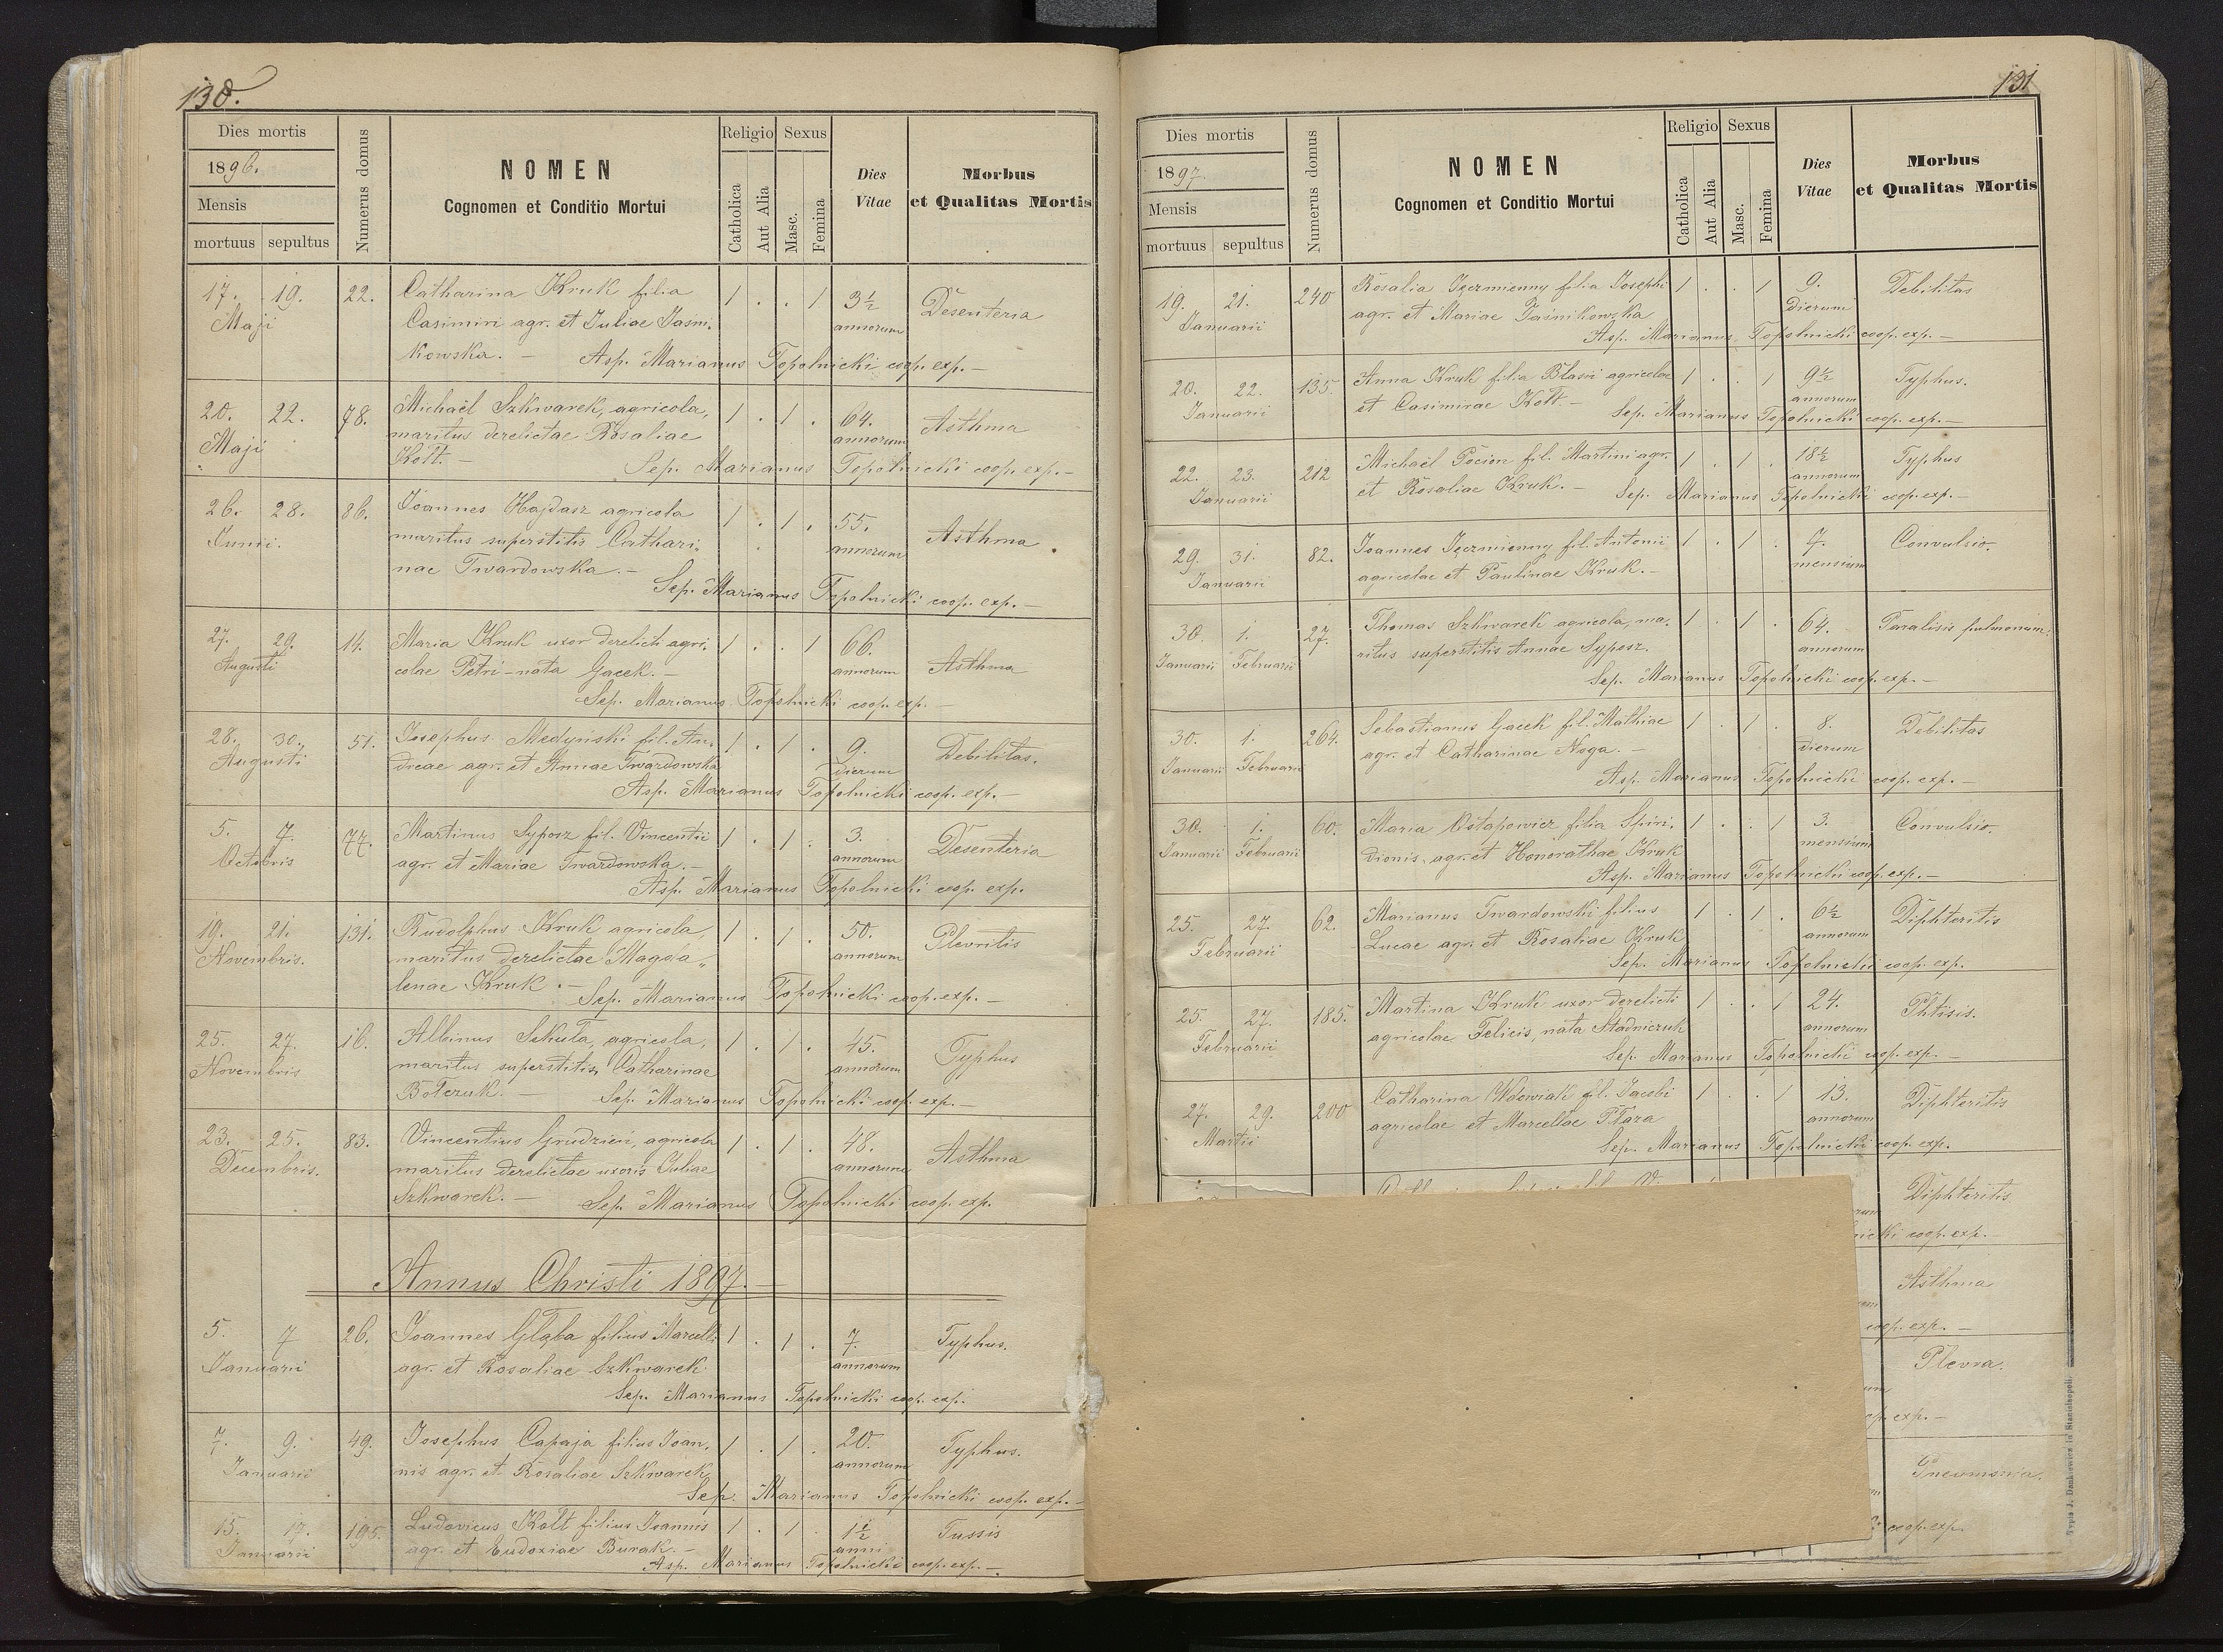 130.
Dies mortis
1896.
Mensis
mortuus sepultus
Numerus domus
NOMEN
Cognomen et Conditio Mortui
Religio Sexus
Catholica
Aut Alia
Masc.
Femina
Dies
Vitae
Morbus
et Qualitas Mortis
17. 19. 22. Catharina Kruk filia 1 . . 1 3½ Desenteria
Maji Casimiri agr. et Juliae Jaśni- annorum
kowska. — Asp. Marianus Topolnicki coop. exp. —
20. 22. 78. Michaël Szkwarek, agricola, 1 . 1 . 64. Asthma
Maji maritus derelictae Rosaliae annorum
Kołt. — Sep. Marianus Topolnicki coop. exp. —
26. 28. 86. Joannes Hajdasz agricola 1 . 1 . 55. Asthma
Junii. maritus superstitis Cathari- annorum
nae Twardowska. — Sep. Marianus Topolnicki coop. exp. —
27. 29. 14. Maria Kruk uxor derelicti agri- 1 . . 1 66. Asthma
Augusti colae Petri - nata Gacek. — annorum
Sep. Marianus Topolnicki coop. exp. —
28. 30. 51. Josephus Medyński fil. An- 1 . 1 . 9. Debilitas.
Augusti dreae agr. et Annae Twardowska dierum
Asp. Marianus Topolnicki coop. exp. —
5. 7. 77. Martinus Syposz fil. Vincentii 1 . 1 . 3. Desenteria
Octobris agr. et Mariae Twardowska. — annorum
Asp. Marianus Topolnicki coop. exp.
19. 21. 131. Rudolphus Kruk agricola, 1 . 1 . 50. Plevritis
Novembris. maritus derelictae Magda- annorum
lenae Kruk. — Sep. Marianus Topolnicki coop. exp. —
25. 27. 16. Albinus Sekuła, agricola, 1 . 1 . 45. Typhus
Novembris maritus superstitis Catharinae annorum
Bołczuk. — Sep. Marianus Topolnicki coop. exp. —
23. 25. 83. Vincentius Grudzień, agricola 1 . 1 . 48. Asthma
Decembris. maritus derelictae uxoris Juliae annorum
Szkwarek. — Sep. Marianus Topolnicki coop. exp.
Annus Christi 1897. —
5. 7 26. Joannes Głąba filius Marcelli 1 . 1 . 7. Typhus.
Januarii agr. et Rosaliae Szkwarek annorum
Sep. Marianus Topolnicki coop. exp.
7. 9. 49. Josephus Capaja filius Joan- 1 . 1 . 20. Typhus.
Januarii nis agr. et Rosaliae Szkwarek annorum
Sep. Marianus Topolnicki coop. exp. —
15. 17. 195. Ludovicus Kołt filius Joannis 1 . 1 . 1½ Tussis
Januarii agr. et Eudoxiae Burak. — anni
Asp. Marianus Topolnicki coop. exp. —
131
Dies mortis
1897.
Mensis
mortuus sepultus
Numerus domus
NOMEN
Cognomen et Conditio Mortui
Religio Sexus
Catholica
Aut Alia
Masc.
Femina
Dies
Vitae
Morbus
et Qualitas Mortis
19. 21. 240 Rosalia Jęczmienny filia Josephi 1 . . 1 9. Debilitas
Januarii agr. et Mariae Jaśnikowska dierum
Asp. Marianus Topolnicki coop. exp. —
20. 22. 135. Anna Kruk filia Blasii agricolae 1 . . 1 9½ Typhus.
Januarii et Casimirae Kołt. — annorum
Sep. Marianus Topolnicki coop. exp. —
22. 23. 212 Michaël Gocion fil. Martini agr. 1 . 1 . 18½ Typhus
Januarii et Rosaliae Kruk. — annorum
Sep. Marianus Topolnicki coop. exp. —
29. 31. 82. Joannes Jęczmienny fil. Antonii 1 . 1 . 7. Convulsio.
Januarii agricolae et Paulinae Kruk. — mensium
30 1. 27. Thomas Szkwarek agricola, ma- 1 . 1 . 64. Paralisis pulmonum.
Januarii Februarii ritus superstitis Annae Syposz. annorum
Sep. Marianus Topolnicki coop. exp. —
30. 1. 264. Sebastianus Gacek fil. Mathiae 1 . 1 . 8. Debilitas
Januarii Februarii agr. et Catharinae Noga. — dierum
Asp. Marianus Topolnicki coop. exp. —
30. 1. 60. Maria Ostapowicz filia Spiri- 1 . . 1 3. Convulsio.
Januarii Februarii dionis agr. et Honorathae Kruk mensium
Asp. Marianus Topolnicki coop. exp. —
25. 27. 62. Marianus Twardowski filius 1 . 1 . 6½ Diphteritis
Februarii Lucae agr. et Rosaliae Kruk annorum
Sep. Marianus Topolnicki coop. exp.
25. 27. 185. Martina Kruk uxor derelicti 1 . . 1 24. Phtisis.
Februarii agricolae Felicis, nata Stadniczuk annorum
Sep. Marianus Topolnicki coop. exp. —
27. 29. 200 Catharina Wdowiak fil. Jacobi 1 . . 1 13. Diphteritis
Martii agricolae et Marcellae Ptara annorum
Sep. Marianus Topolnicki coop. exp.
Diphteritis
coop. exp. —
Asthma
coop. exp. —
Plevra.
exp. —
Pneumonia.
coop. exp.
Typis J. Dankiewicz in Stanislaopoli.